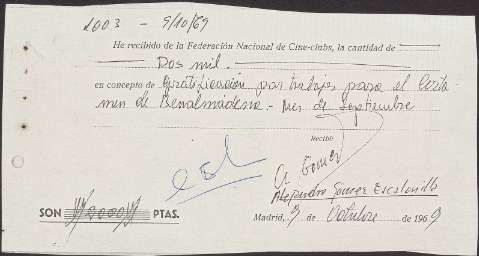 1003 - 9/10/69
He recibido de la Federación Nacional de Cine-clubs, la cantidad de
Dos mil.
en concepto de Gratificación por trabajos para el Certa-
men de Benalmadena.- Mes de Septiembre
Recibí:
A Gomez
Alejandro Gomez Escalonilla
SON #2000# PTAS.
Madrid, 9 de Octubre de 1969